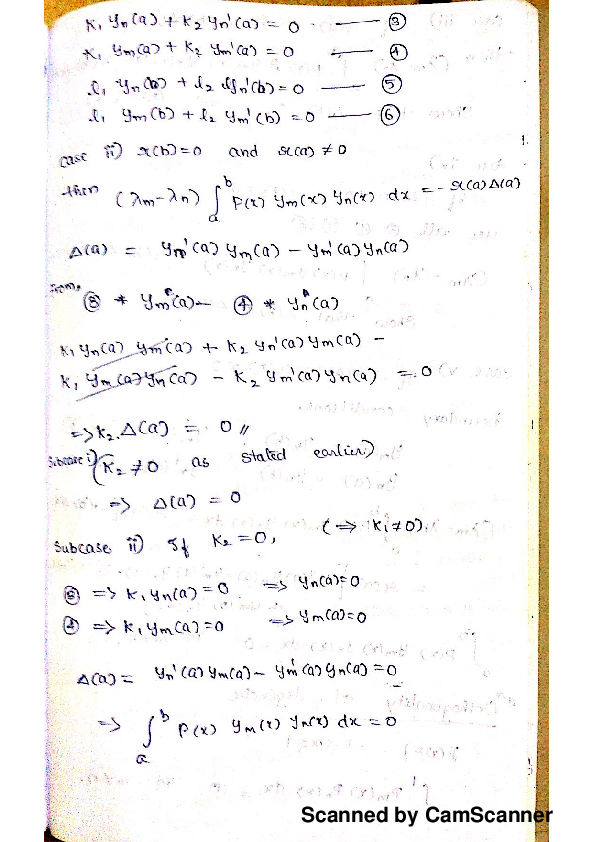 K₁ yn(a) + K₂ yn'(a) = 0 —— ③
K₁ ym(a) + K₂ ym'(a) = 0 —— ④
l₁ yn(b) + l₂ yn'(b) = 0 —— ⑤
l₁ ym(b) + l₂ ym'(b) = 0 —— ⑥
case ii) r(b)=0 and r(a) ≠ 0
then (λm - λn) ∫ₐᵇ P(x) ym(x) yn(x) dx = - r(a) Δ(a)
Δ(a) = yn'(a) ym(a) - ym'(a) yn(a)
from,
③ * ym(a) - ④ * yn(a)
K₁ yn(a) ym(a) + K₂ yn'(a) ym(a) -
K₁ ym(a) yn(a) - K₂ ym'(a) yn(a) = 0
=> K₂ . Δ(a) = 0 //
Subcase i) (K₂ ≠ 0 as stated earlier)
=> Δ(a) = 0
Subcase ii) If K₂ = 0, (=> K₁ ≠ 0).
③ => K₁ yn(a) = 0 => yn(a) = 0
④ => K₁ ym(a) = 0 => ym(a) = 0
Δ(a) = yn'(a) ym(a) - ym'(a) yn(a) = 0
=> ∫ₐᵇ P(x) ym(x) yn(x) dx = 0
Scanned by CamScanner